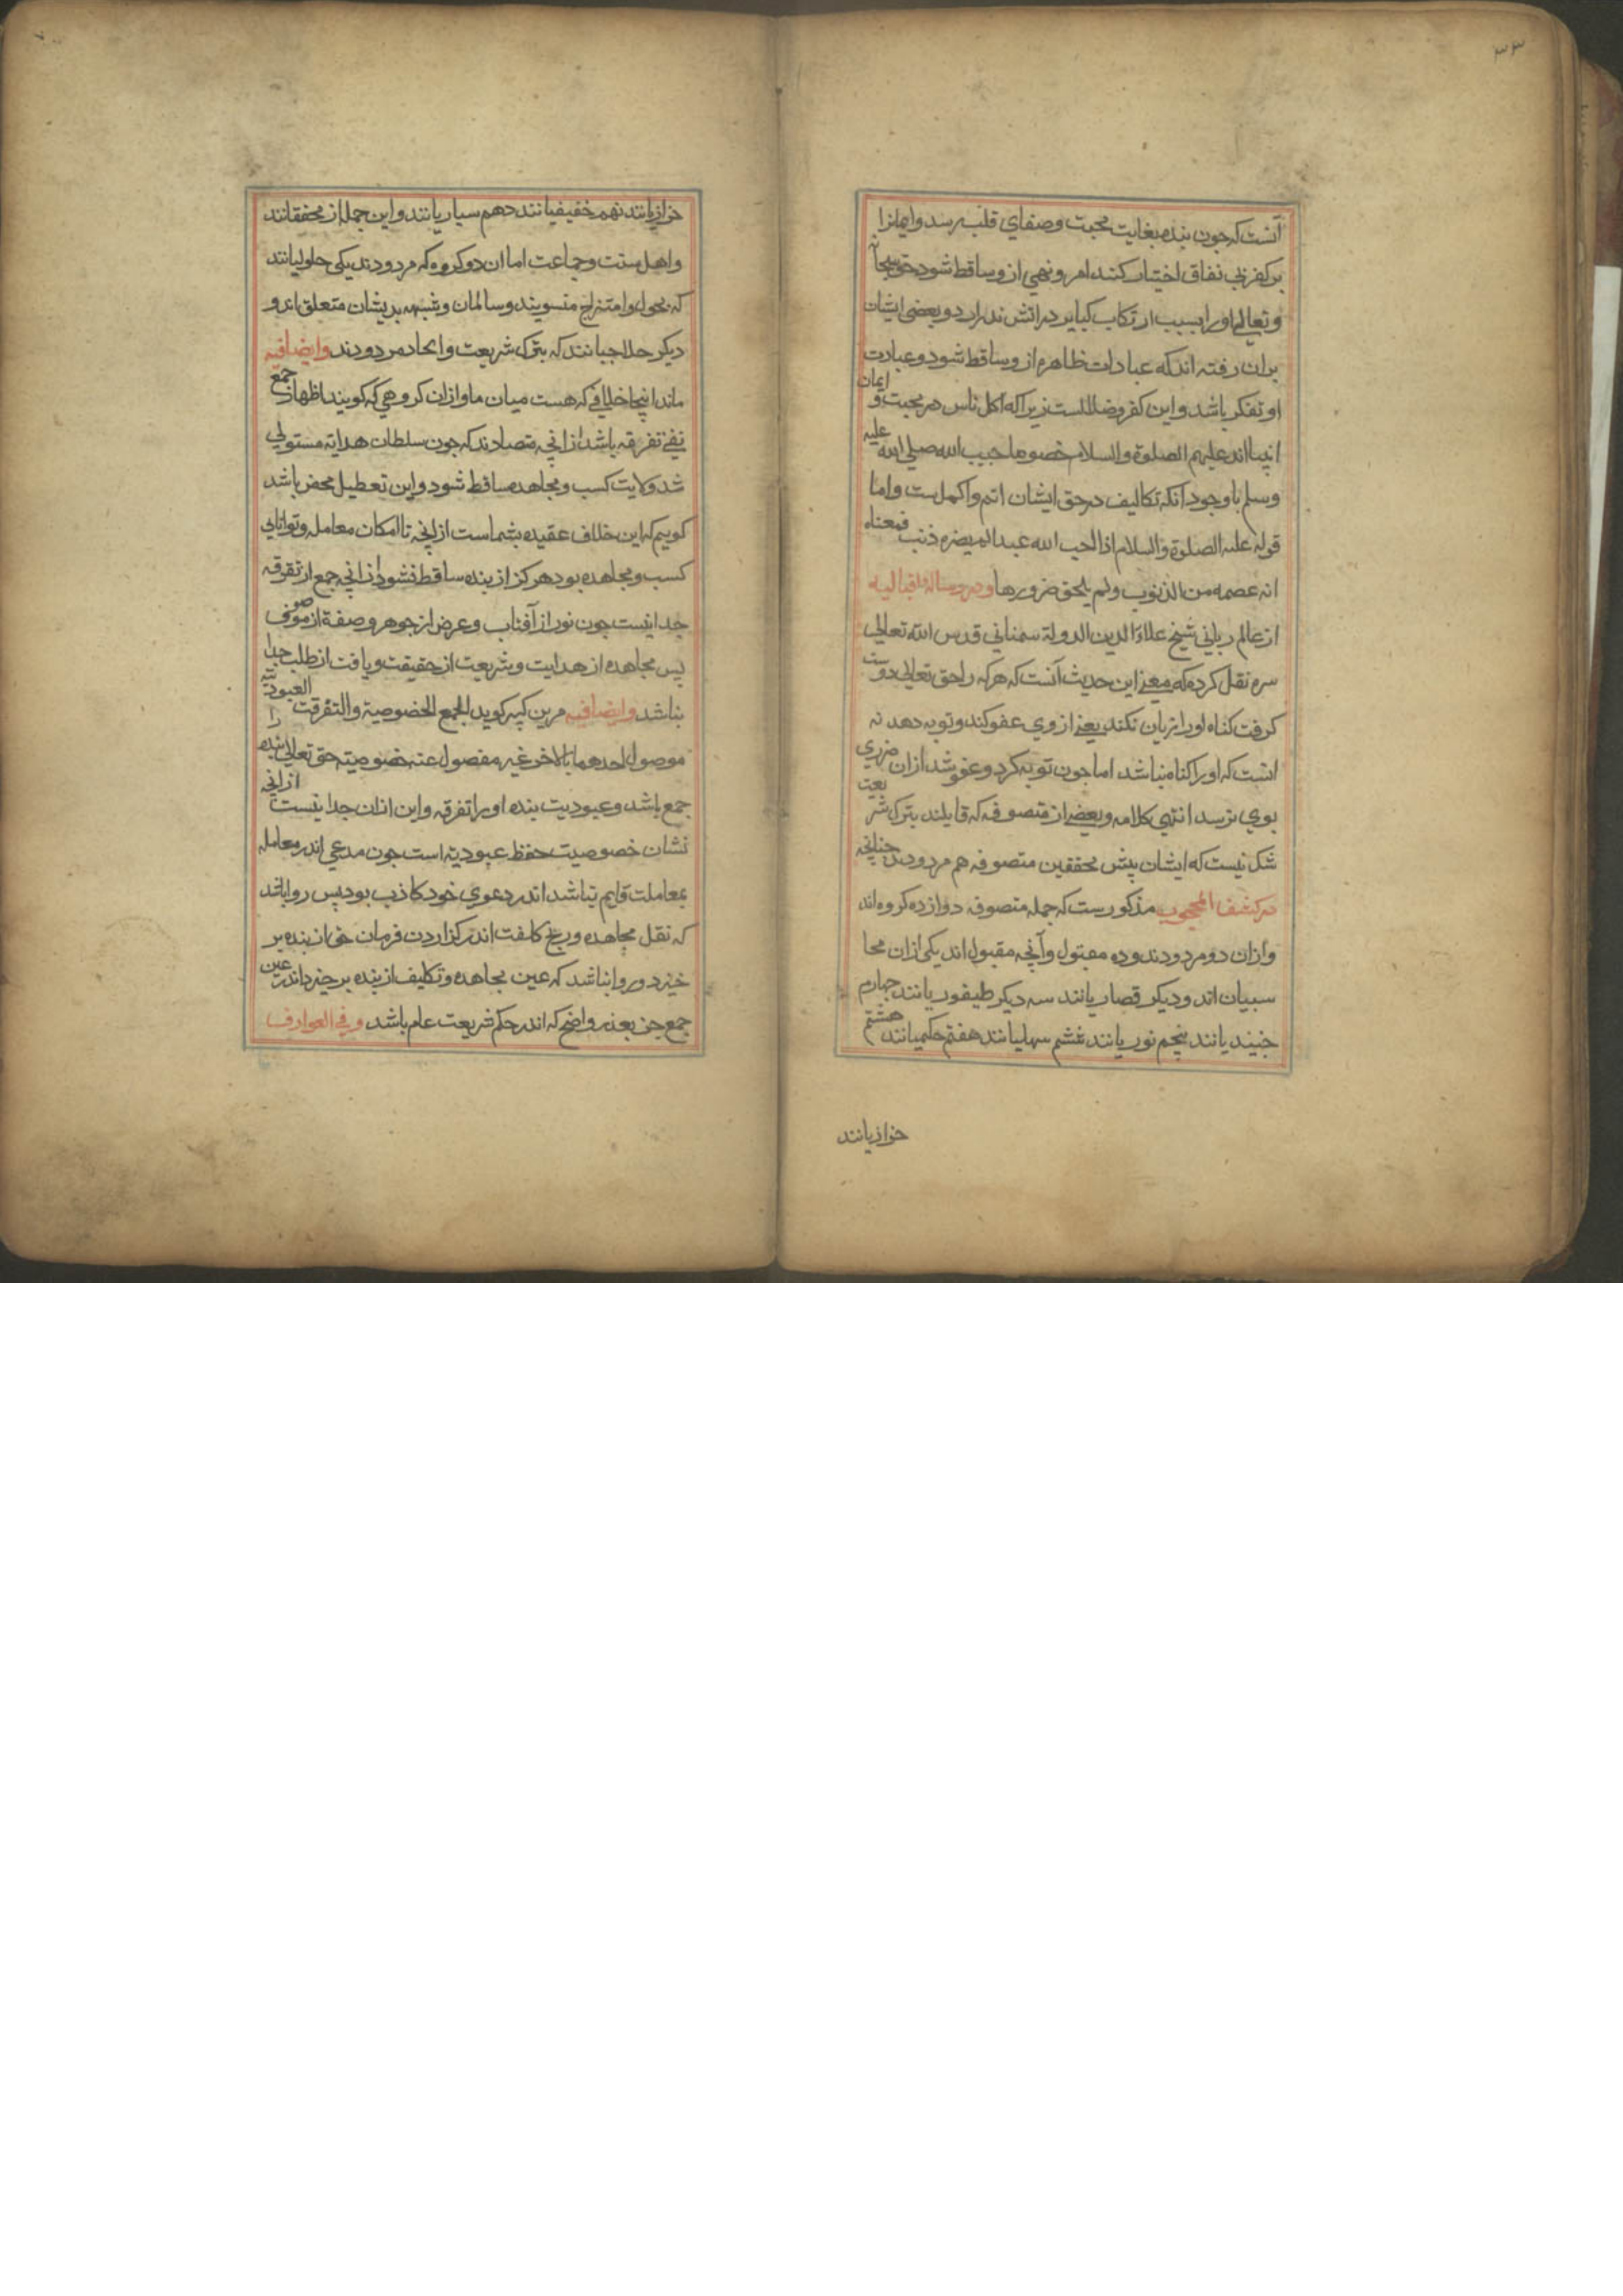 ۳۳
آنست که جون بنده بغایت محبت وصفای قلب برسد وایمانرا
بر کفر بی نفاق اختیار کند امر ونهی ازو ساقط شود حق سبحا
وتعالی اورا بسبب ارتکاب کبایر در اتش ندرارد وبعضی ایشان
بران رفته اند که عبادات ظاهره ازو ساقط شود وعبادت
او تفکر باشد واین کفر وضلالست زیرا که اکمل ناس در محبت و ایمان
انبیااند علیهم الصلوة والسلام خصوصا حبیب الله صلی الله علیه
وسلم باوجود آنکه تکالیف در حق ایشان اتم واکمل ست واما
قوله علیه الصلوة والسلام اذا احب الله عبدا لم یضره ذنب فمعناه
انه عصمه من الذنوب ولم یلحق ضرورها ودر رساله اقبالیه
از عالم ربانی شیخ علاء الدین الدولة سمنانی قدس الله تعالی
سره نقل کرده که معنی این حدیث آنست که هرکه را حق تعالی دوست
کرفت کناه اورا زیان نکند یعنی از وی عفو کند وتوبه دهد نه
انست که اورا کناه نباشد اما جون توبه کرد وعفو شد ازان ضرری
بوی نرسد انتهی کلامه وبعضی از متصوفه که قایلند بترک شریعت
شک نیست که ایشان پیش محققین متصوفه هم مردودند جنانچه
در کشف المحجوب مذکورست که جمله متصوفه دوازده کروه اند
وازان دو مردودند وده مقبول وآنچه مقبول اند یکی ازان محا
سبیان اند ودیکر قصاریانند سه دیکر طیفوریانند جهارم
جنیدیانند پنجم نوریانند ششم سهلیانند هفتم حکمیانند هشتم
خرازیانند
خرازیانند نهم خفیفیانند دهم سیاریانند واین جمله از محققانند
واهل سنت وجماعت اما ان دو کروه که مردودند یکی حلولیانند
که بحول وامتزاج منسوبند وسالمان ومشبهه بدیشان متعلق اند و
دیکر حلاجیانند که بترک شریعت والحاد مردودند وایضا فیه
ماند اینجا خلافی که هست میان ما وازان کروهی که کویند اظهار جمع
نفی تفرقه باشد زانچه متضادند که جون سلطان هدایة مستولی
شد ولایت کسب ومجاهده ساقط شود واین تعطیل محض باشد
کوییم که این خلاف عقیده شماست ازانچه تا امکان معامله وتوانایی
کسب ومجاهده بود هرکز از بنده ساقط نشود زانچه جمع از تفرقه
جدا نیست جون نور از آفتاب وعرض از جوهر وصفة از موصوف
پس مجاهده از هدایت وشریعت از حقیقت ویافت از طلب جدا
نباشد وایضا فیه مزین کبیر کوید الجمع الخصوصیة والتفرقت العبودیته
موصول احدهما بالاخر غیر مفصول عنه خصوصیته حق تعالی بنده را
جمع باشد وعبودیت بنده اورا تفرقه واین ازان جدا نیست ازانچه
نشان خصوصیت حفظ عبودیة است جون مدعی اندر معامله
بمعاملت قایم نباشد اندر دعوی خود کاذب بود پس روا باشد
که نقل مجاهده ورنج کلفت اندر کزاردن فرمان حق از بنده بر
خیزد وروا نباشد که عین مجاهده وتکلیف از بنده بر خیزد اندر عین
جمع جز بعذر واضح که اندر حکم شریعت عام باشد وفی العوارف